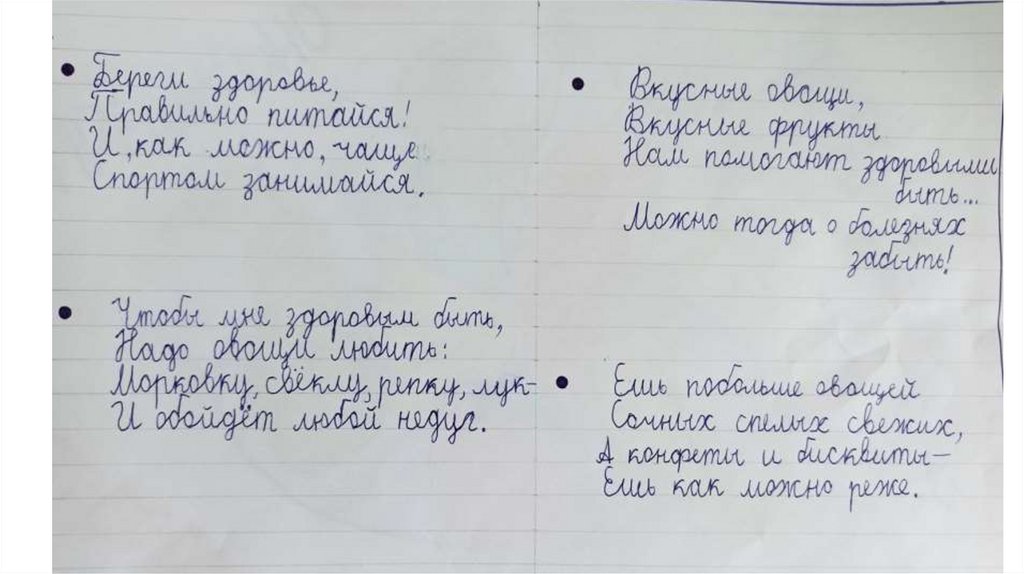 Береги здоровье,
Правильно питайся!
И, как можно, чаще
Спортом занимайся.
Чтобы мне здоровым быть,
Надо овощи любить:
Морковку, свёклу, репку, лук-
И обойдёт любой недуг.
Вкусные овощи,
Вкусные фрукты
Нам помогают здоровыми
быть...
Можно тогда о болезнях
забыть!
Ешь побольше овощей
Сочных спелых свежих,
А конфеты и бисквиты—
Ешь как можно реже.